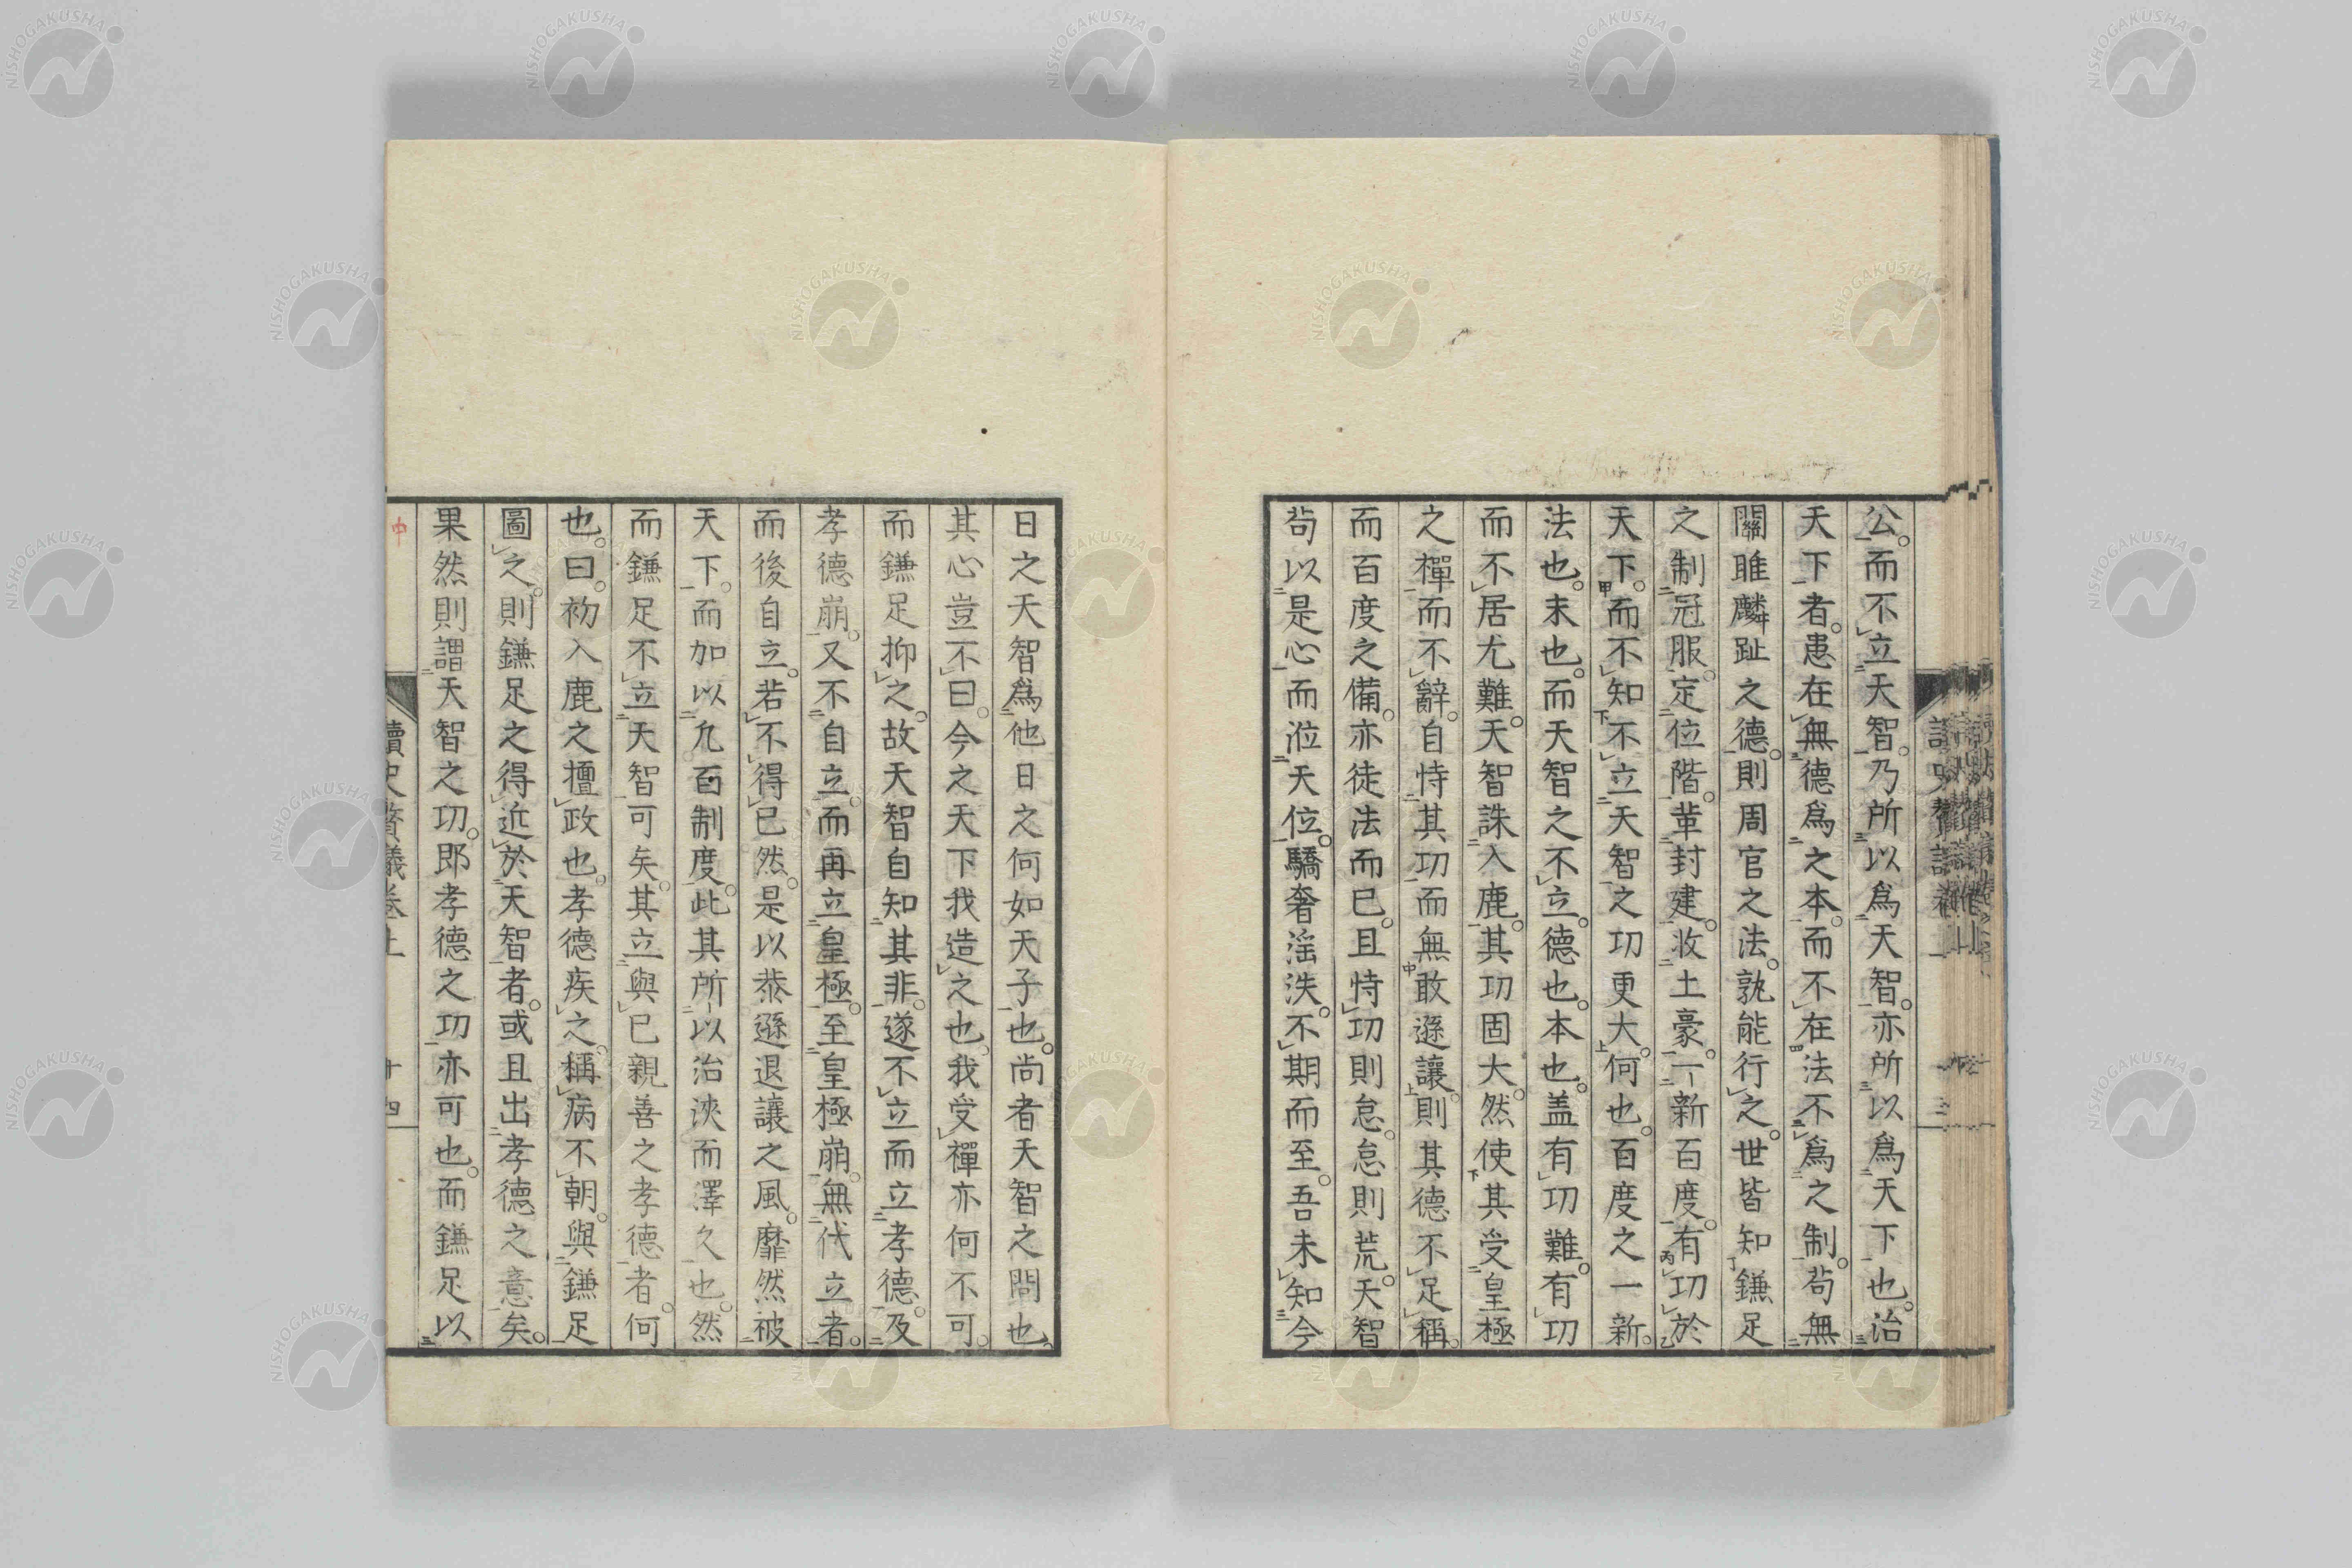 公。而不立天智。乃所以爲天智。亦所以爲天下也。治
天下者。患在無德爲之本。而不在法不爲之制。苟無
關雎麟趾之德。則周官之法。孰能行之。世皆知鎌足
之制冠服。定位階。葺封建。收土豪。一新百度。有功於
天下。而不知不立天智之功更大。何也。百度之一新。
法也。末也。而天智之不立。德也。本也。盖有功難。有功
而不居尤難。天智誅入鹿。其功固大。然使其受皇極
之禪而不辭。自恃其功而無敢遜讓。則其德不足稱。
而百度之備。亦徒法而已。且恃功則怠。怠則荒。天智
苟以是心而涖天位。驕奢淫泆。不期而至。吾未知今
日之天智爲他日之何如天子也。尚者天智之問也。
其心豈不曰。今之天下我造之也。我受禪亦何不可。
而鎌足抑之。故天智自知其非。遂不立而立孝德。及
孝德崩。又不自立。而再立皇極。至皇極崩。無代立者。
而後自立。若不得已然。是以恭遜退讓之風。靡然被
天下。而加以允百制度。此其所以治浹而澤久也。然
而鎌足不立天智可矣。其立與已親善之孝德者。何
也。曰。初入鹿之擅政也。孝德疾之。稱病不朝。與鎌足
圖之。則鎌足之得近於天智者。或且出孝德之意矣。
果然則謂天智之功。郎孝德之功亦可也。而鎌足以
讀史贅議卷上
十四
中
NISHOGAKUSHA